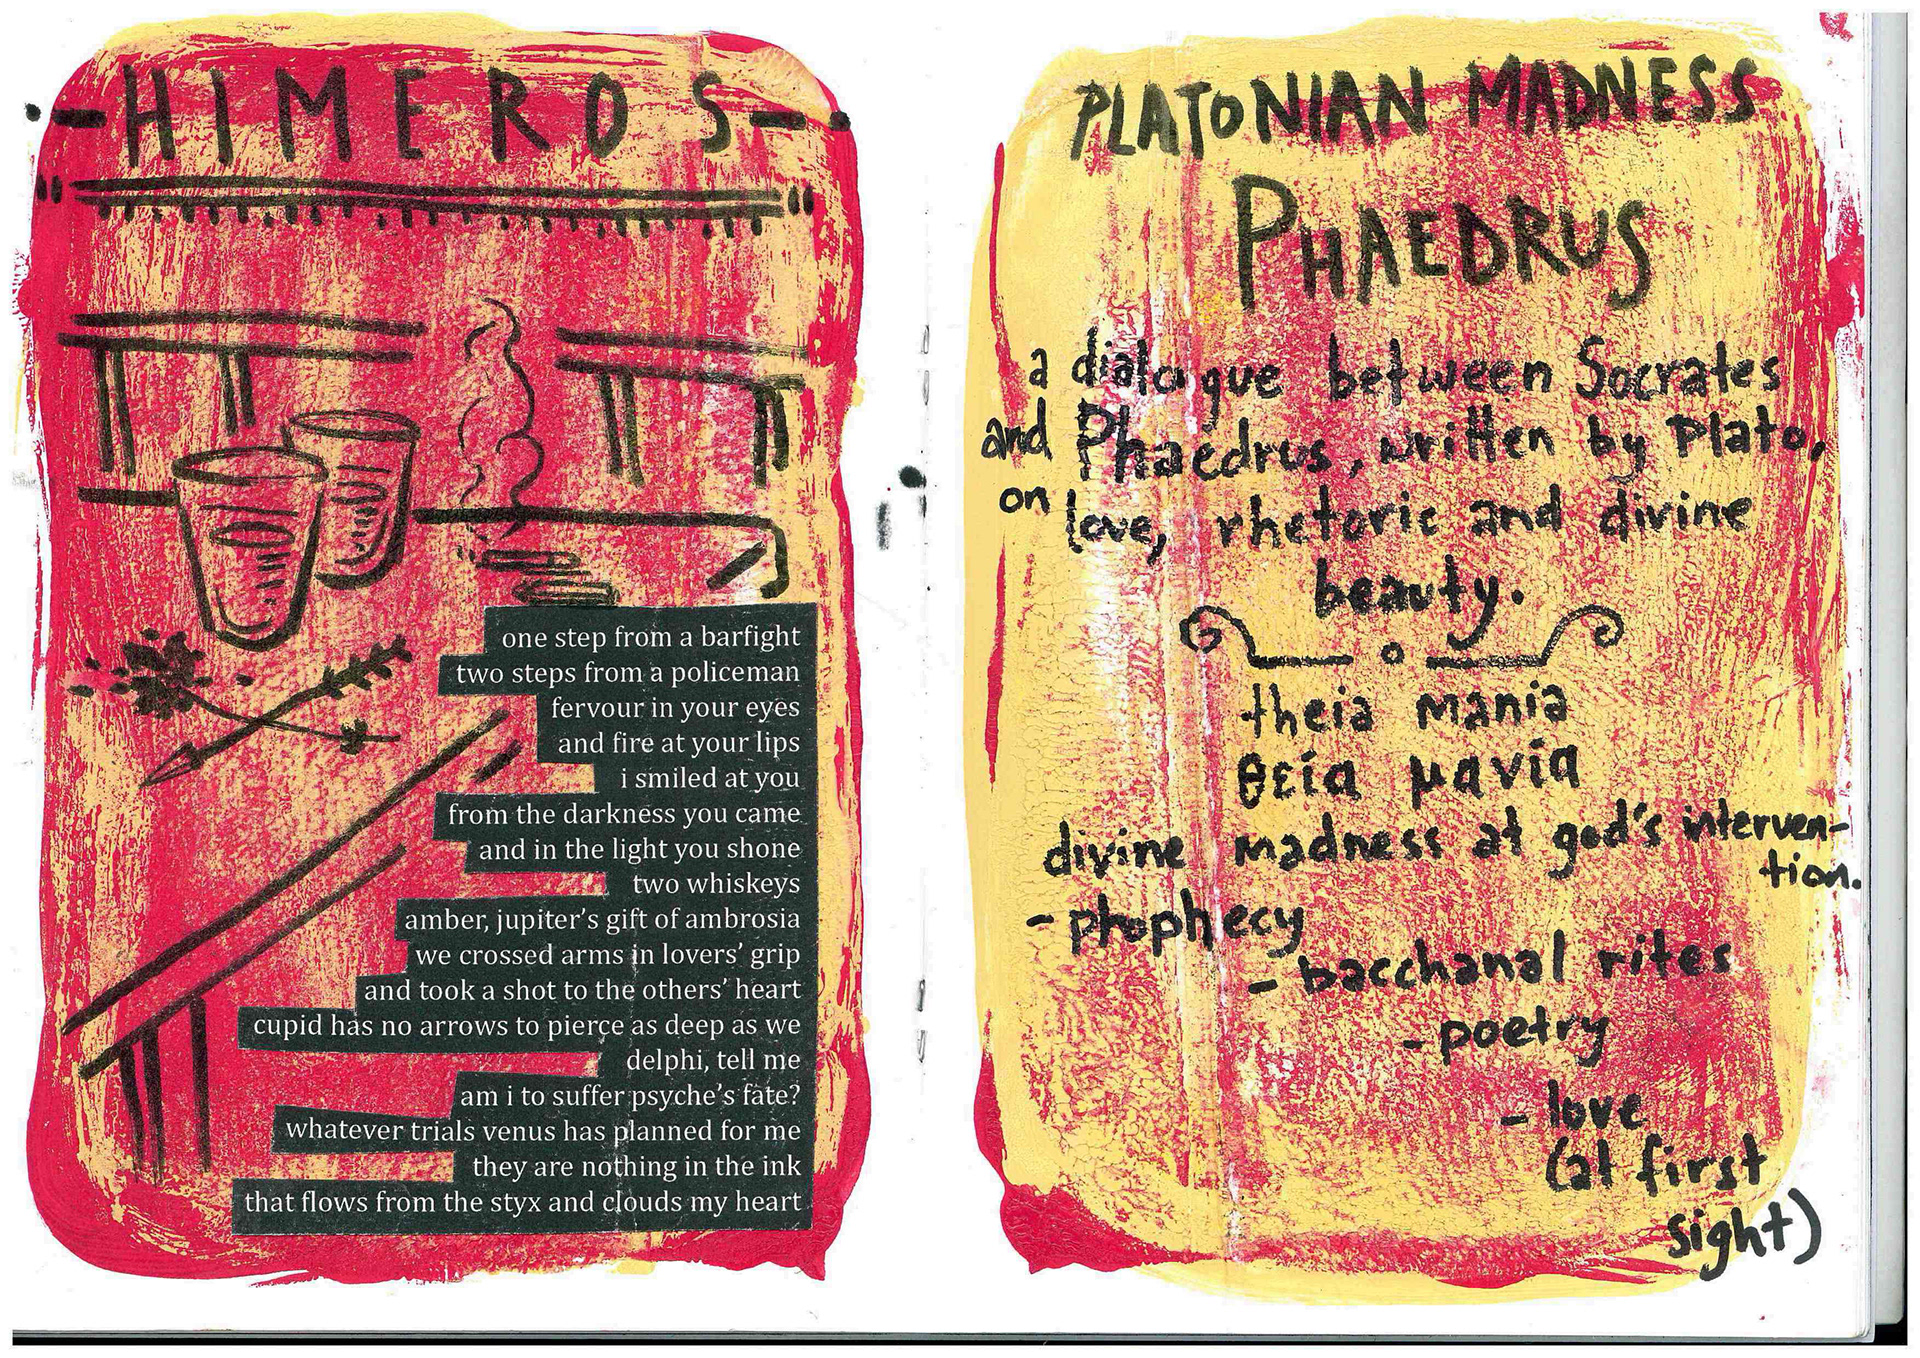 HIMEROS
one step from a barfight
two steps from a policeman
fervour in your eyes
and fire at your lips
i smiled at you
from the darkness you came
and in the light you shone
two whiskeys
amber, jupiter's gift of ambrosia
we crossed arms in lovers' grip
and took a shot to the others' heart
cupid has no arrows to pierce as deep as we
delphi, tell me
am i to suffer psyche's fate?
whatever trials venus has planned for me
they are nothing in the ink
that flows from the styx and clouds my heart
PLATONIAN MADNESS
PHAEDRUS
a dialogue between Socrates
and Phaedrus, written by Plato,
on love, rhetoric and divine
beauty.
theia mania
θεία μανία
divine madness at god's interven-
tion.
- prophecy
- bacchanal rites
- poetry
- love
(at first
sight)